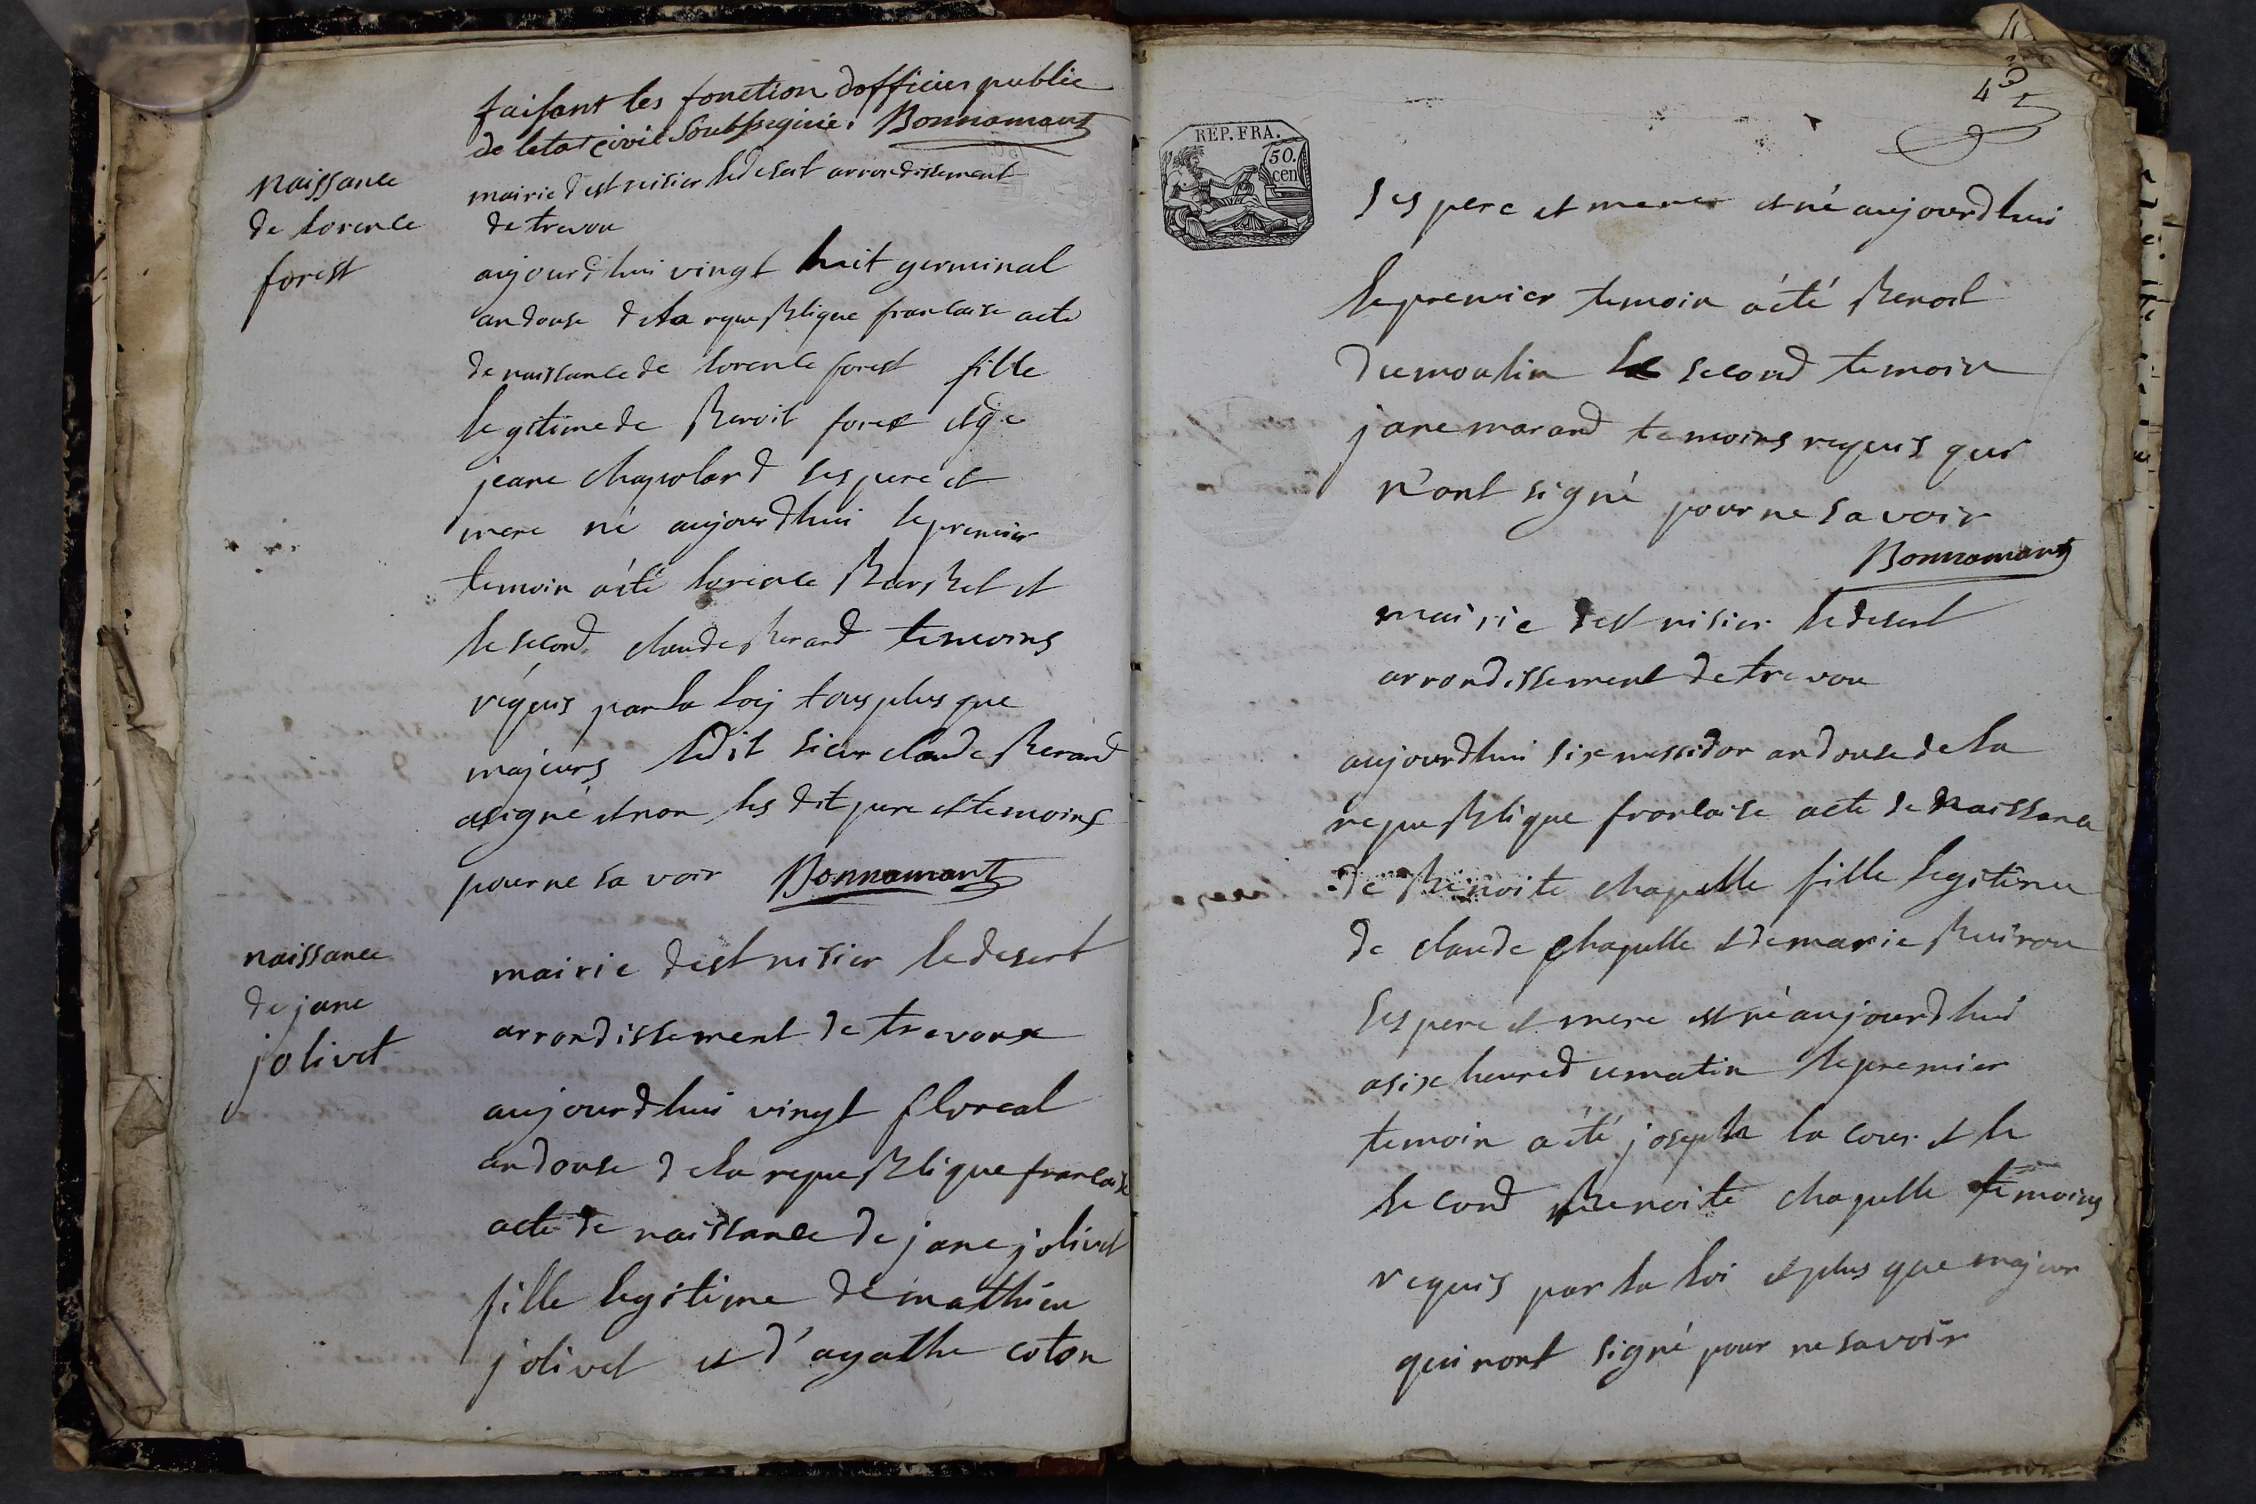 faisant les fonction dofficier public
de letat civil Soubsegnié. Bonnamant
naissance
de lorence
forest
mairie dest nisier ledesert arrondissement
de trevou
aujourdhui vingt huit germinal
andouse dela republique francaise acte
de naissance de lorence forest fille
legitime de Benoit forest
jeane chapolard ses pere et
mere né aujourdhui le premier
temoin aété lorence et
le second claude Berard temoins
réquis par la loy tous plus que
majeurs ledit sieur claude Berard
asigné et non les dit pere et temoins
pour ne sa voir Bonnamant
naissance
de jane
jolivet
mairie dest nisier ledesert
arrondissement de trevoux
aujourdhui vingt floreal
andouse dela republique francaise
acte de naissance de jane jolivet
fille legitime de mathieu
jolivet et d'agathe coton
43
REP. FRA.
50.
cen
ses pere et mere et né aujourdhui
le premier temoin aété Benoit
dumoulin le second temoin
jane marand temoins requis qui
n'ont signé pour ne savoir
Bonnamant
mairie dest nisier ledesert
arrondissement de trevou
aujourdhui six messidor andouse dela
republique francaise acte de naissance
de Benoite chapelle fille legitime
de claude chapelle et de marie Buiron
ses pere et mere est né aujourdhui
asix heure dumatin le premier
temoin aété joseph la cour et le
second Benoite chapelle temoins
requis par la loi et plus que majeur
qui nont signé pour ne savoir